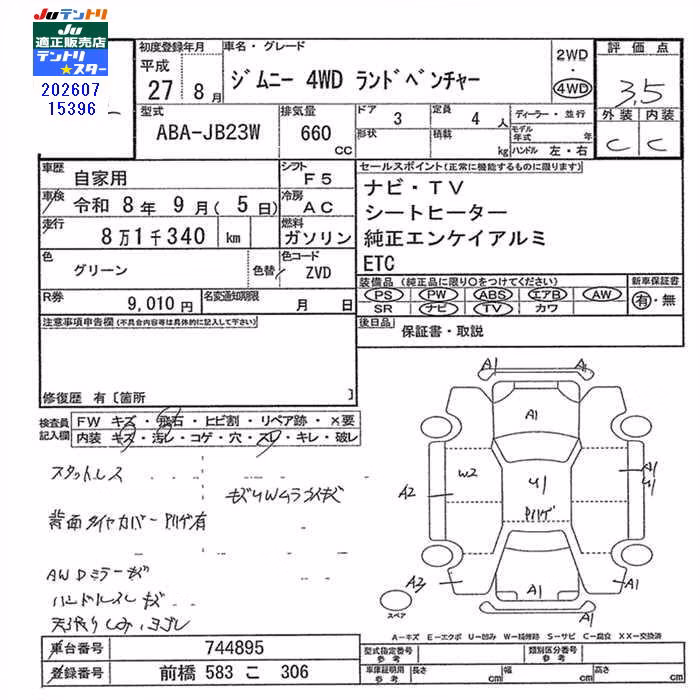 JUテントリ
JU
適正販売店
テントリ
★スター
202607
15396
初度登録年月
平成
27 8月
車名・グレード
ジムニー 4WD ランドベンチャー
2WD
・
4WD
評価点
3.5
外装 内装
C C
型式
ABA-JB23W
排気量
660
CC
ドア 3
形状
定員 4 人
積載 kg
ディーラー・並行
モデル年式 年
ハンドル 左・右
車歴
自家用
シフト
F5
車検
令和 8年 9月( 5日)
冷房
AC
走行
8万1千340 km
燃料
ガソリン
色
グリーン
色替
色コード
ZVD
R券
9,010円
名変通知期限
月 日
セールスポイント(正常に機能するものに限ります)
ナビ・TV
シートヒーター
純正エンケイアルミ
ETC
装備品 (純正品に限り〇をつけてください)
PS PW ABS エアB AW
SR ナビ TV カワ
新車保証書
有・無
後日品
保証書・取説
注意事項申告欄(不具合内容等は具体的に記入して下さい)
修復歴 有〔箇所 〕
検査員
記入欄
FW キズ・飛石・ヒビ割・リペア跡・×要
内装 キズ・汚レ・コゲ・穴・スレ・キレ・破レ
スタットレス
背面タイヤカバー
AWDミラーキズ
ハンドルスレ キズ
A1
A1
A1
W2
U1
A1
U1
A2
A2
A1
A1
A1
スペア
A－キズ E－エクボ U－凹み W－補修跡 S－サビ C－腐食 XX－交換済
車台番号
744895
登録番号
前橋 583 こ 306
型式指定番号
参考
類別区分番号
参考
車庫証明用
参考
長さ cm
幅 cm
高さ cm